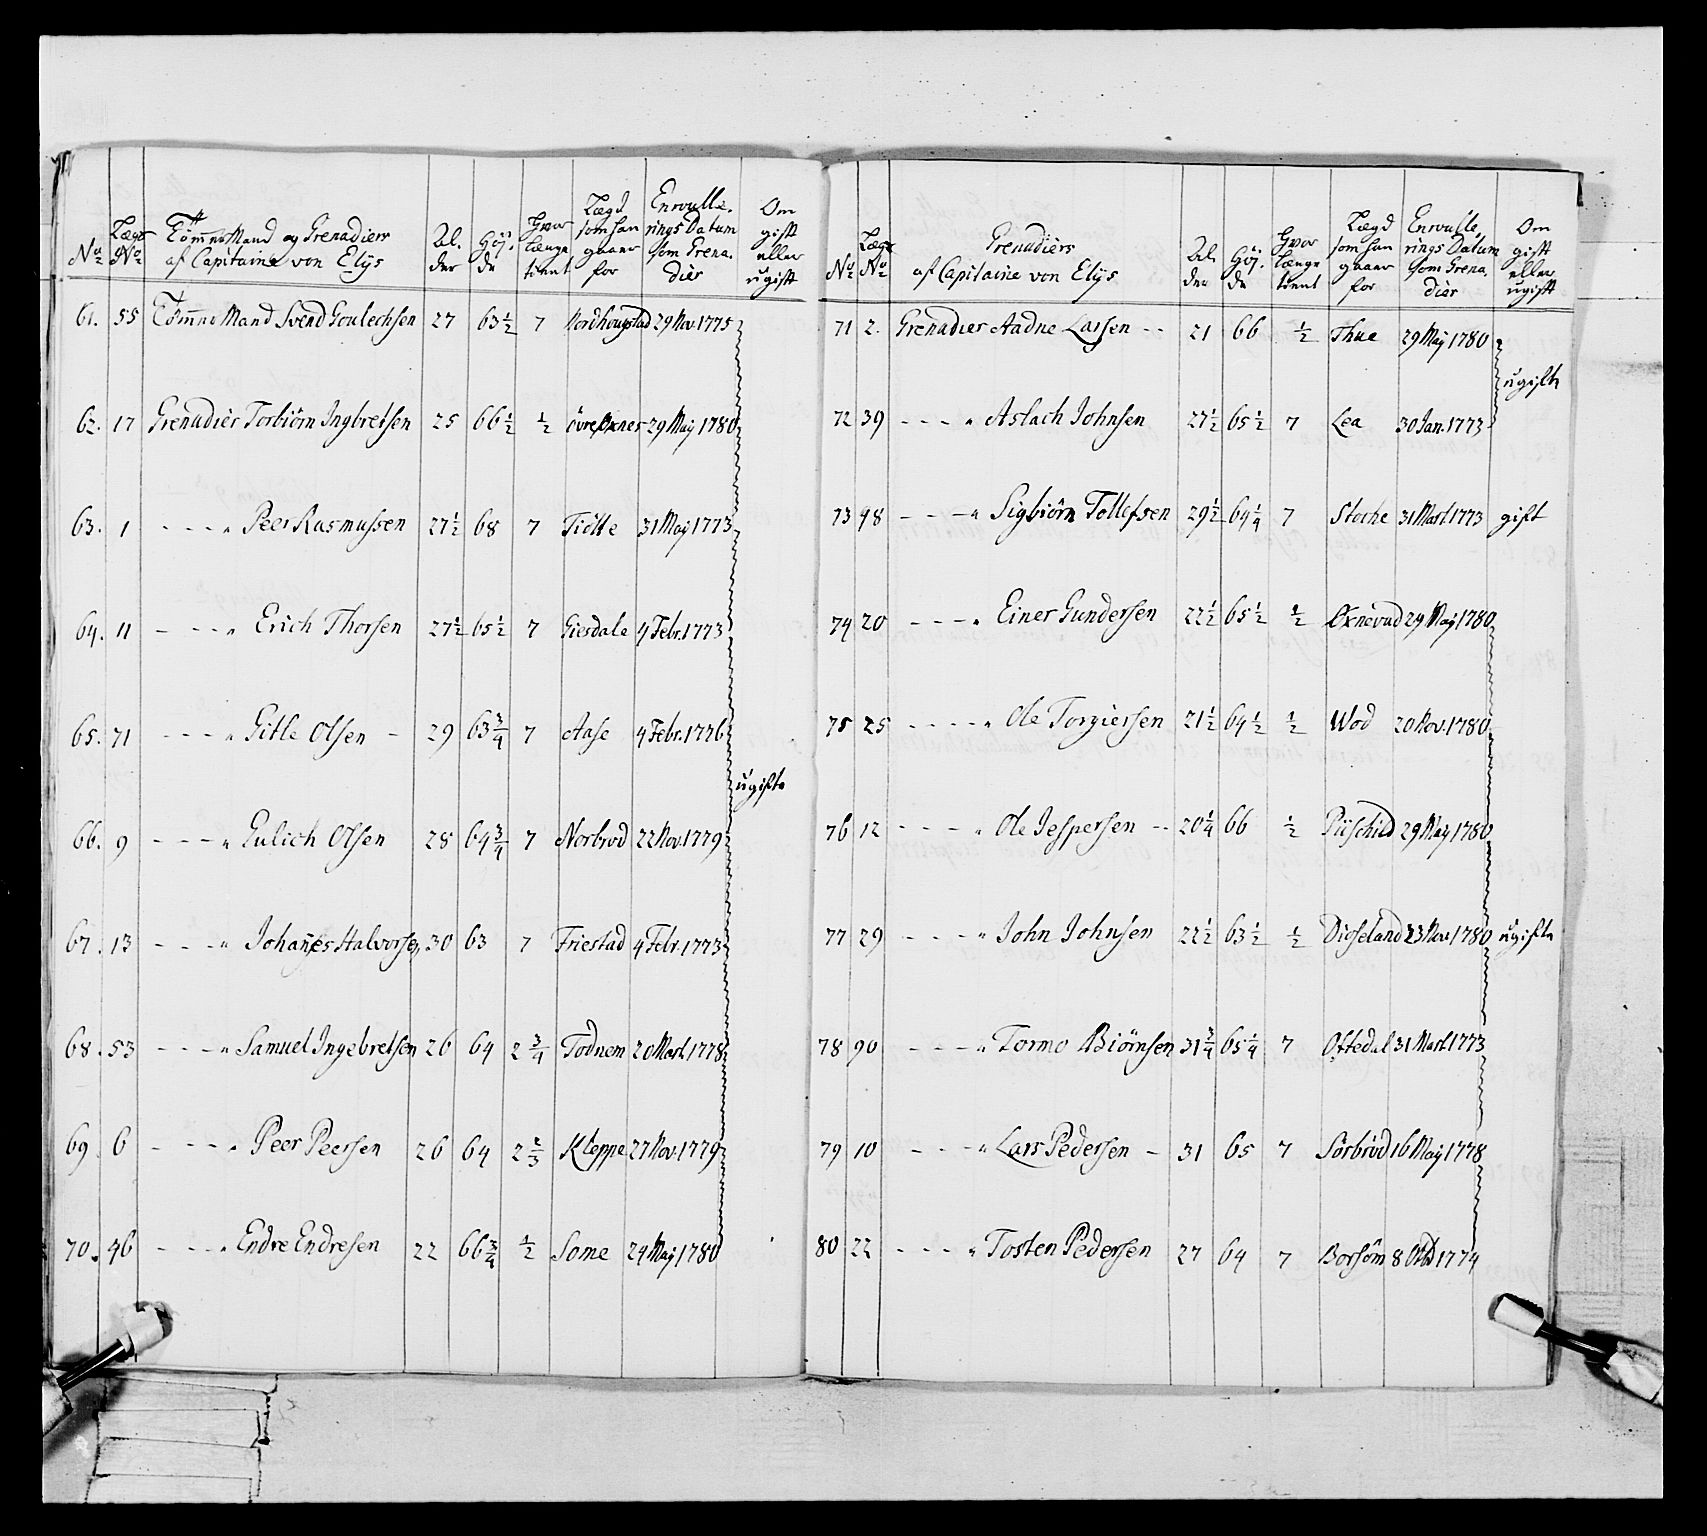 No Lægs No Tømmer Mand og Grenadiers af Capitaine von Elÿs Al. der Høj. de Hvor længe tient Lægd som han gaaer for Enroulle. rings Datum som Grena. dier Om gift eller ugift
61. 55 Tømmer Mand Svend Goulechsen 27 63½ 7 Nordhougstad 29 Nov. 1775
62. 17 Grenadier Torbiörn Ingbretsen 25 66½ ½ övre Øxner 29 Maÿ 1780
63. 1 - - - " Peer Rasmussen 27½ 68 7 Tiötte 31 Maÿ 1773
64. 11 - - - " Erich Thorsen 27½ 65½ 7 Giesdale 4 Febr. 1773
65. 71 - - - " Gitle Olsen - 29 63¾ 7 Aase 4 Febr. 1776
ugifte
66. 9 - - - " Eulich Olsen 28 64¾ 7 Norbrod 22 Nov. 1779
67. 13 - - - " Johanes Halvorsen 30 63 7 Friestad 4 Febr. 1773
68. 53 - - - " Samuel Ingebretsen 26 64 2¾ Todnem 20 Mart. 1778
69 6 - - - " Peer Peersen 26 64 2⅔ Kleppe 27 Nov. 1779
70. 46 - - - " Endre Endresen 22 66¾ ½ Some 29 Maÿ 1780
No Lægs No Grenadiers af Capitaine von Elÿs Al. der Høj. de Hvor længe tient Lægd som han gaaer for Enroulle. rings Datum som Grena. dier Om gift eller ugift
71 2. Grenadier Aadne Larsen - - 21 66 ½ Thue 29 Maÿ 1780
ugifte
72 39 - - - " Aslach Johnsen 27½ 65½ 7 Lea 30 Jan. 1773
73 98 - - - " Sigbiörn Tollefsen 29½ 64¼ 7 Stocke 31 Mart. 1773 gift
74 20 - - - " Einer Gundersen 22½ 65½ ½ Øxnevad 29 Maÿ 1780
75 25 - - - - " Ole Torgiersen 21½ 64½ ½ Wod 20 Nov. 1780
76 12 - - - - " Ole Jespersen - - 20¼ 66 ½ 29 Maÿ 1780
77 29 - - - " John Johnsen 22½ 63½ ½ 23 Nov. 1780 ugifte
78 90 - - - " Tormo Biörnsen 31¾ 65¼ 7 Oftedal 31 Mart. 1773
79 10 - - - " Lars Pedersen - 31 65 7 Sörbröd 16 Maÿ 1778
80 22 - - - " Tosten Pedersen 27 64 7 Borsöm 8 Octb 1774